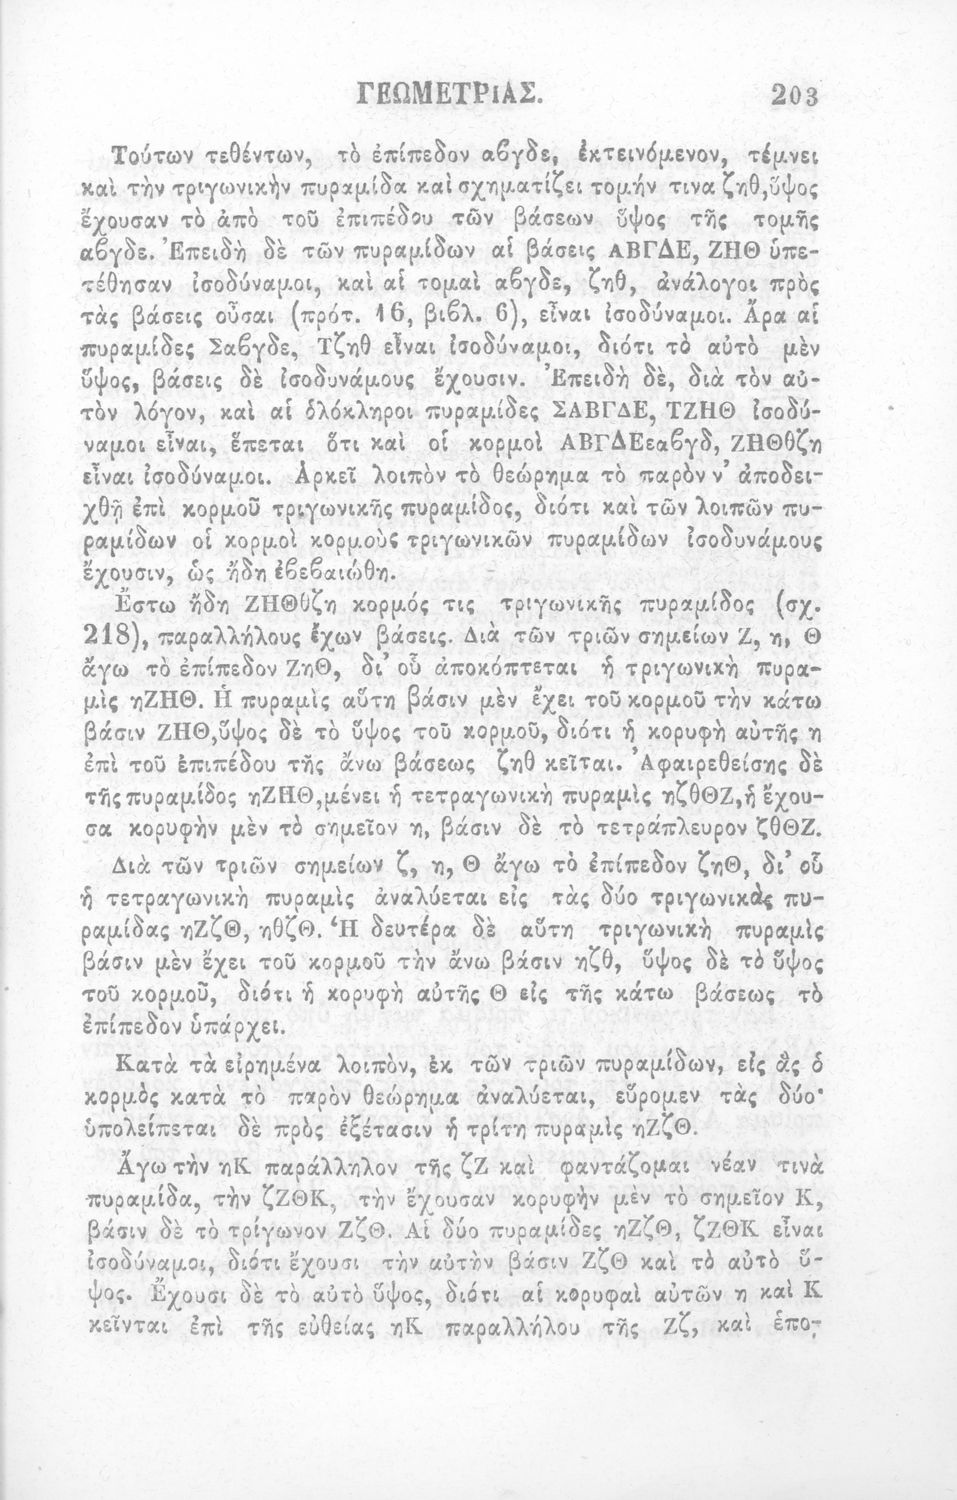 ΓΕΩΜΕΤΡΙΑΣ. 203
Τούτων τεθέντων, τὸ ἐπίπεδον αϐγδε, ἐκτεινόμενον, τέμνει
καὶ τὴν τριγωνικὴν πυραμίδα καὶ σχηματίζει τομήν τινα ζηθ, ὕψος
ἔχουσαν τὸ ἀπὸ τοῦ ἐπιπέδου τῶν βάσεων ὕψος τῆς τομῆς
αϐγδε. Ἐπειδὴ δὲ τῶν πυραμίδων αἱ βάσεις ΑΒΓΔΕ, ΖΗΘ ὑπε-
τέθησαν ἰσοδύναμοι, καὶ αἱ τομαὶ αϐγδε, ζηθ, ἀνάλογοι πρὸς
τὰς βάσεις οὖσαι (πρότ. 16, βιϐλ. 6), εἶναι ἰσοδύναμοι. Ἄρα αἱ
πυραμίδες Σαϐγδε, Τζηθ εἶναι ἰσοδύναμοι, διότι τὸ αὐτὸ μὲν
ὕψος, βάσεις δὲ ἰσοδυνάμους ἔχουσιν. Ἐπειδὴ δὲ, διὰ τὸν αὐ-
τὸν λόγον, καὶ αἱ ὁλόκληροι πυραμίδες ΣΑΒΓΔΕ, ΤΖΗΘ ἰσοδύ-
ναμοι εἶναι, ἕπεται ὅτι καὶ οἱ κορμοὶ ΑΒΓΔΕεαϐγδ, ΖΗΘθζη
εἶναι ἰσοδύναμοι. Ἀρκεῖ λοιπὸν τὸ θεώρημα τὸ παρὸν ν' ἀποδει-
χθῇ ἐπὶ κορμοῦ τριγωνικῆς πυραμίδος, διότι καὶ τῶν λοιπῶν πυ-
ραμίδων οἱ κορμοὶ κορμοὺς τριγωνικῶν πυραμίδων ἰσοδυνάμους
ἔχουσιν, ὡς ἤδη ἐϐεϐαιώθη.
Ἔστω ἤδη ΖΗΘθζη κορμός τις τριγωνικῆς πυραμίδος (σχ.
218), παραλλήλους ἔχων βάσεις. Διὰ τῶν τριῶν σημείων Ζ, η, Θ
ἄγω τὸ ἐπίπεδον ΖηΘ, δι' οὗ ἀποκόπτεται ἡ τριγωνικὴ πυρα-
μὶς ηΖΗΘ. Ἡ πυραμὶς αὕτη βάσιν μὲν ἔχει τοῦ κορμοῦ τὴν κάτω
βάσιν ΖΗΘ, ὕψος δὲ τὸ ὕψος τοῦ κορμοῦ, διότι ἡ κορυφὴ αὐτῆς η
ἐπὶ τοῦ ἐπιπέδου τῆς ἄνω βάσεως ζηθ κεῖται. Ἀφαιρεθείσης δὲ
τῆς πυραμίδος ηΖΗΘ, μένει ἡ τετραγωνικὴ πυραμὶς ηζθΘΖ, ἡ ἔχου-
σα κορυφὴν μὲν τὸ σημεῖον η, βάσιν δὲ τὸ τετράπλευρον ζθΘΖ.
Διὰ τῶν τριῶν σημείων ζ, η, Θ ἄγω τὸ ἐπίπεδον ζηΘ, δι' οὗ
ἡ τετραγωνικὴ πυραμὶς ἀναλύεται εἰς τὰς δύο τριγωνικὰς πυ-
ραμίδας ηΖζΘ, ηθζΘ. Ἡ δευτέρα δὲ αὕτη τριγωνικὴ πυραμὶς
βάσιν μὲν ἔχει τοῦ κορμοῦ τὴν ἄνω βάσιν ηζθ, ὕψος δὲ τὸ ὕψος
τοῦ κορμοῦ, διότι ἡ κορυφὴ αὐτῆς Θ εἰς τῆς κάτω βάσεως τὸ
ἐπίπεδον ὑπάρχει.
Κατὰ τὰ εἰρημένα λοιπὸν, ἐκ τῶν τριῶν πυραμίδων, εἰς ἃς ὁ
κορμὸς κατὰ τὸ παρὸν θεώρημα ἀναλύεται, εὕρομεν τὰς δύο·
ὑπολείπεται δὲ πρὸς ἐξέτασιν ἡ τρίτη πυραμὶς ηΖζΘ.
Ἄγω τὴν ηΚ παράλληλον τῆς ζΖ καὶ φαντάζομαι νέαν τινὰ
πυραμίδα, τὴν ζΖΘΚ, τὴν ἔχουσαν κορυφὴν μὲν τὸ σημεῖον Κ,
βάσιν δὲ τὸ τρίγωνον ΖζΘ. Αἱ δύο πυραμίδες ηΖζΘ, ζΖΘΚ εἶναι
ἰσοδύναμοι, διότι ἔχουσι τὴν αὐτὴν βάσιν ΖζΘ καὶ τὸ αὐτὸ ὕ-
ψος. Ἔχουσι δὲ τὸ αὐτὸ ὕψος, διότι αἱ κορυφαὶ αὐτῶν η καὶ Κ
κεῖνται ἐπὶ τῆς εὐθείας ηΚ παραλλήλου τῆς Ζζ, καὶ ἑπο-